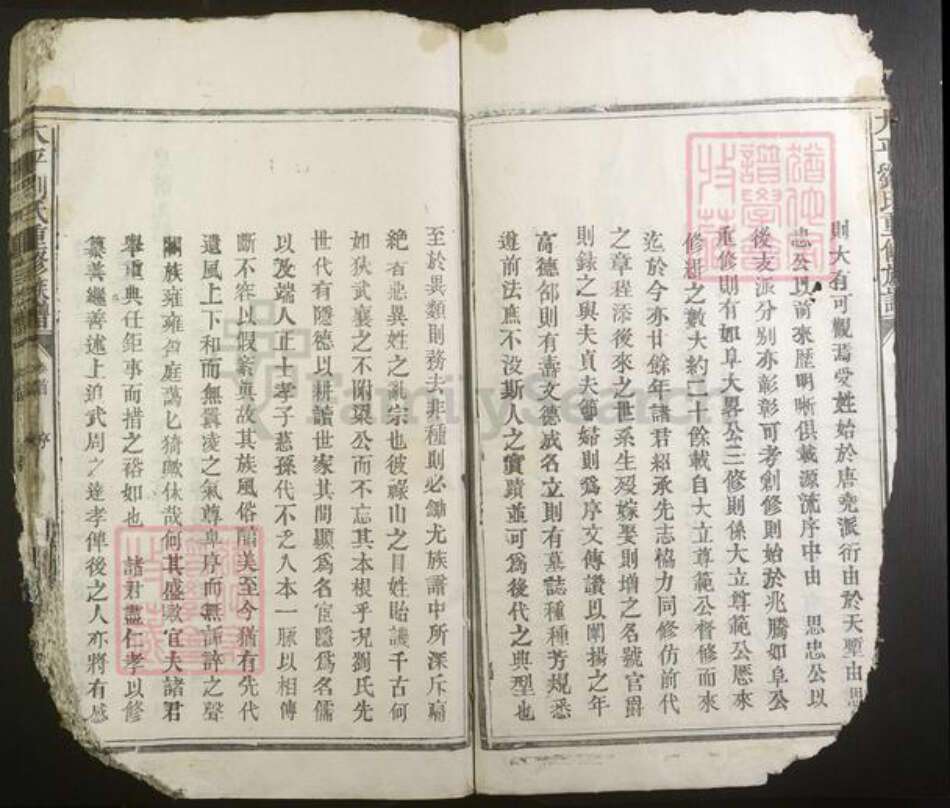 則大有可觀焉受姓始於唐堯派衍由於天
忠公以前來歷明晰俱載源流序中由 思忠公以
後支派分別亦彰彰可考創修則始於兆騰如阜公
重修則有如阜大畧公三修則係大立尊範公歷來
修輯之數大約二十餘載自大立尊範公督修而來
迄於今亦廿餘年諸君紹承先志恊力同修仿前代
之章程添後來之世系生歿嫁娶則增之名號官爵
則錄之與夫貞夫節婦則爲序文傳讚以闡揚之年
高德邵則有壽文德威名立則有墓誌種種芳規悉
遵前法庶不沒斯人之實蹟並可爲後代之典型也
至於異類則務去非種則必鋤尤族譜中所深斥痛
絕者惡異姓之亂宗也彼祿山之冒姓貽譏千古何
如狄武襄之不附梁公而不忘其本根乎况劉氏先
世代有隱德以耕讀世家其間顯爲名宦隱爲名儒
以及端人正士孝子慈孫代不乏人本一脈以相傳
斷不容以假紊眞故其族風俗醇美至今猶有先代
遺風上下和而無囂凌之氣尊卑序而無訴誶之聲
闔族雍雍一庭藹匕猗歟休哉何其盛歟宜夫諸君
舉重典任鉅事而措之裕如也 諸君盡仁孝以修
纂善繼善述上追武周之達孝俾後之人亦將有感
太平劉氏重修族譜
卷首
序
太平劉氏重修族譜
FamilySearch